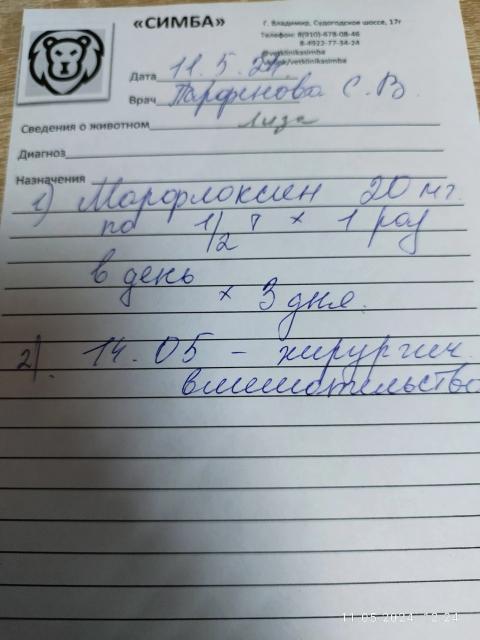 «СИМБА»
Г. Владимир, Судогодское шоссе, 17г
Телефон: 8(910)-678-08-46
8-4922-77-34-24
@vetklinikasimba
vetklinikasimba
Дата 11.5.24
Врач Парфенова С.В.
Сведения о животном Лиза
Диагноз
Назначения
1) Марфлоксин 20 мг.
по 1/2 т × 1 раз
в день × 3 дня.
2) 14.05 - хирургич.
вмешательство
11.05.2024 12:24